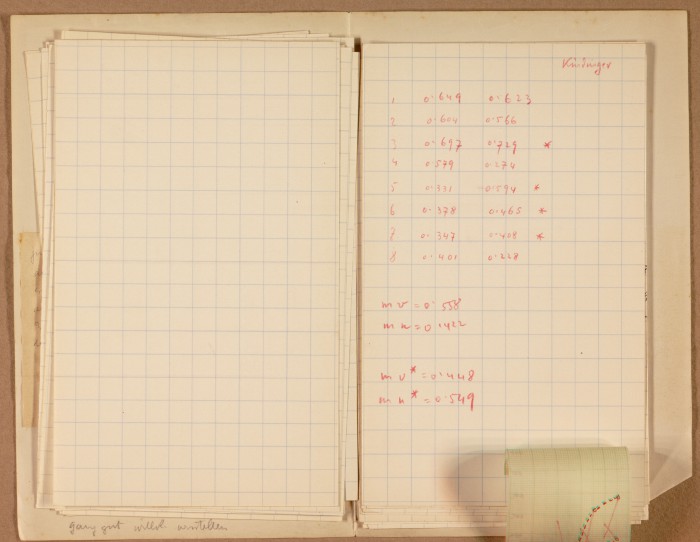 1 0.649 0.623
2 0.604 0.566
3 0.697 0.729 *
4 0.579 0.274
5 0.371 0.594 *
6 0.378 0.465 *
7 0.347 0.408 *
8 0.401 0.228
m v = 0.558
m n = 0.422
m v* = 0.448
m n* = 0.549
ganz gut